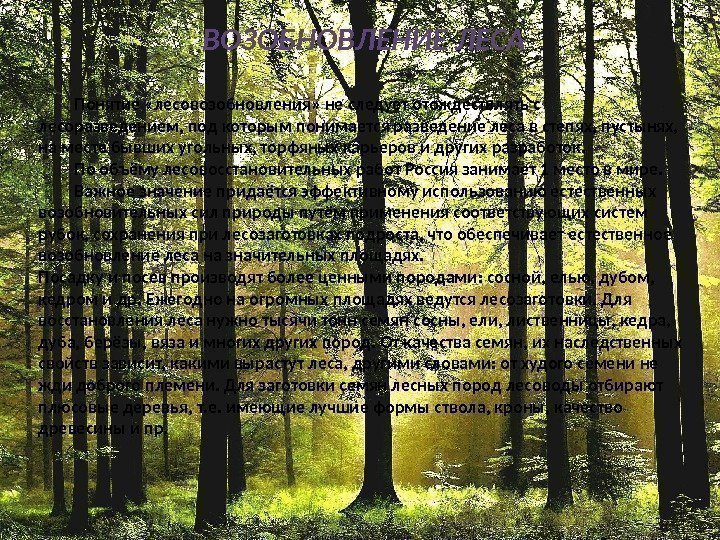 ВОЗОБНОВЛЕНИЕ ЛЕСА
Понятие «лесовозобновления» не следует отождествлять с
лесоразведением, под которым понимается разведение леса в степях, пустынях,
на месте бывших угольных, торфяных карьеров и других разработок.
По объёму лесовосстановительных работ Россия занимает 1 место в мире.
Важное значение придаётся эффективному использованию естественных
возобновительных сил природы путём применения соответствующих систем
рубок, сохранения при лесозаготовках подроста, что обеспечивает естественное
возобновление леса на значительных площадях.
Посадку и посев производят более ценными породами: сосной, елью, дубом,
кедром и др. Ежегодно на огромных площадях ведутся лесозаготовки. Для
восстановления леса нужно тысячи тонн семян сосны, ели, лиственницы, кедра,
дуба, берёзы, вяза и многих других пород. От качества семян, их наследственных
свойств зависит, какими вырастут леса, другими словами: от худого семени не
жди доброго племени. Для заготовки семян лесных пород лесоводы отбирают
плюсовые деревья, т.е. имеющие лучшие формы ствола, кроны, качество
древесины и пр.